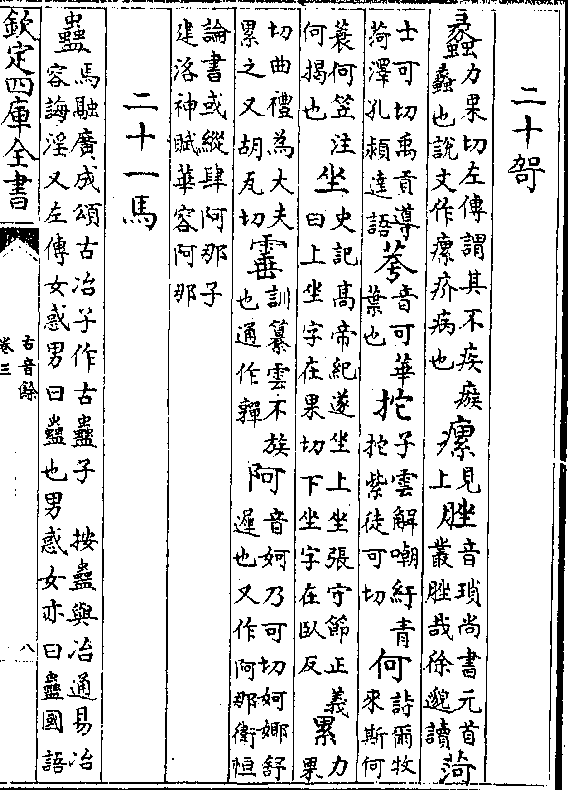 二十哿
蠡力果切左傳謂其不疾瘯蠡也說文作瘰疥病也瘰見上脞音瑣尚書元首叢脞哉徐邈讀菏
士可切禹貢導菏澤孔頴達語荂音可華葉也拕子雲解嘲紆青拕紫徒可切何詩爾牧來斯何
蓑何笠注何揭也坐史記髙帝紀遂坐上坐張守節正義曰上坐字在果切下坐字在臥反累力果
切曲禮為大夫累之又胡瓦切訓纂雲不族也通作嚲阿音妸乃可切妸娜舒遲也又作阿那衛恒
論書或縱肆阿那子建洛神賦華容阿那
二十一馬
蠱馬融廣成頌古冶子作古蠱子 按蠱與冶通易冶容誨淫又左傳女惑男曰蠱也男惑女亦曰蠱國語
欽定四庫全書
古音餘
卷三
八